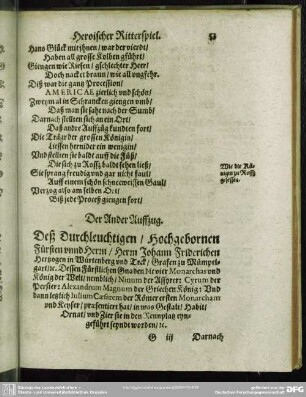 Heroischer Ritterspiel. 51
Hans Glück mit jhnen / war der vierdt /
Haben all grosse Kolben gführt /
Giengen wie Riesen / gschlechter Heer /
Doch nacket braun / wie all ongfehr.
Diß war die gantz Procession /
AMERICAE zierlich vnd schön /
Zweymal in Schrancken giengen vmb /
Daß man sie sahe nach der Sumb /
Darnach stellten sich an ein Ort /
Daß andre Auffzüg kundten fort /
Die Träger der grossen Königin /
Liessen hernider ein wenigin /
Vnd stellten sie baldt auff die Füß /
Die sich zu Roß baldt sehen ließ /
Wie die Kö-
nigin zu Roß
gesessen.
Sie sprang freudig vnd gar nicht faul /
Auff einem schön schneeweissen Gaul /
Verzog also am selben Ort /
Biß jede Proceß giengen fort /
Der Ander Auffzug.
Deß Durchleuchtigen / Hochgebornen
Fürsten vnnd Herrn / Herrn Johann Friderichen
Hertzogen in Würtenberg vnd Teck / Grafen zu Mümpel-
gart / etc. Dessen Fürstlichen Gnaden die vier Monarchas vnd
König der Welt / nemblich / Ninum der Assyrer: Cyrum der
Persier: Alexandrum Magnum der Griechen König: Vnd
dann letzlich Iulium Cæsarem der Römer ersten Monarcham
vnd Keyser / præsentiert hat / in was Gestalt / Habit /
Ornat / vnd Zier sie in den Rennplatz eyn-
geführt seynd worden / etc.
G iij Darnach